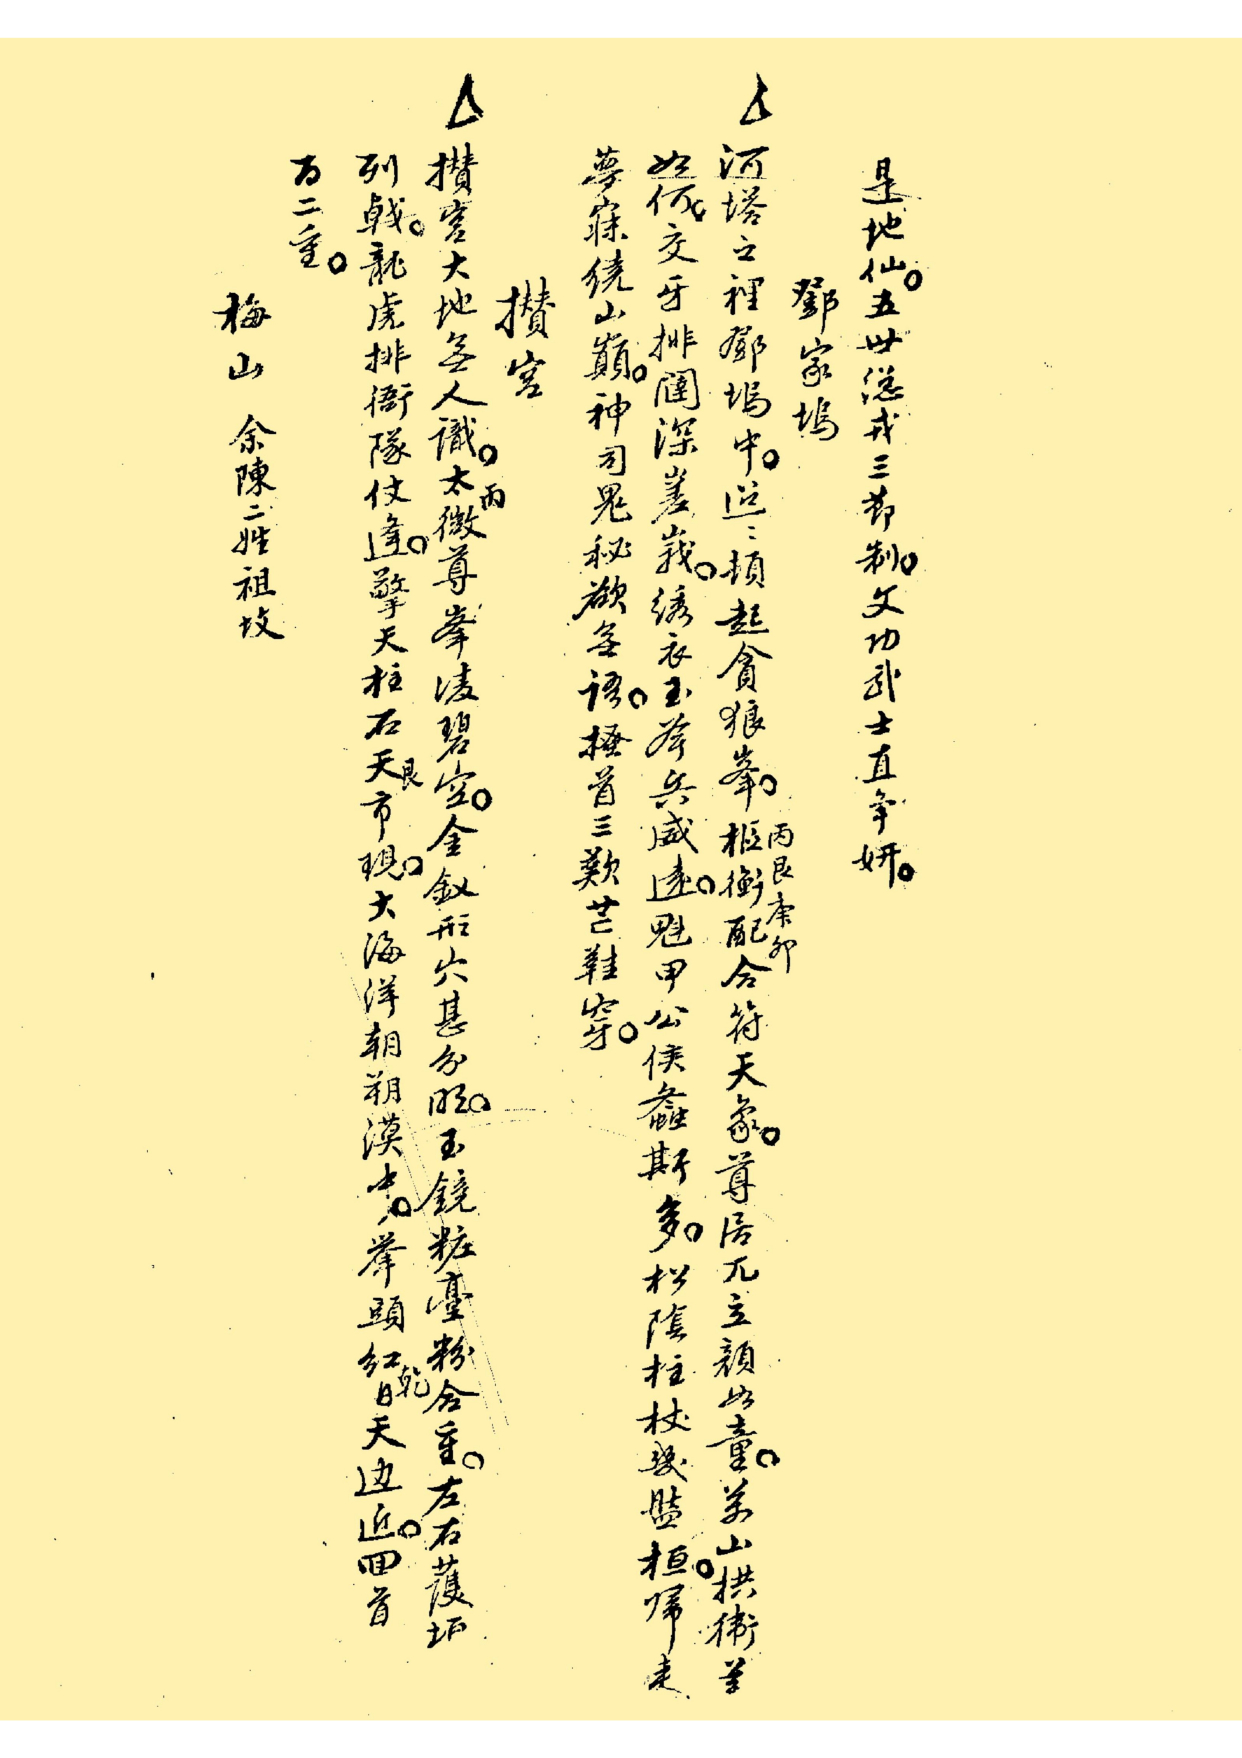 是地仙。五世總戎三節制。文功武士直争妍。
鄧家塢
河塔之裡鄧塢中。迢〻頓起貪狼峯。樞衡配合符天象。尊居兀立顔如童。萬山拱衛
丙艮庚卯
如何。交牙排闥深嵯峩。綉衣玉斧兵威遠。魁甲公侯螽斯多。松陰柱杖幾盤桓。歸来
夢寐繞山巔。神司鬼秘欲無語。搔首三歎芒鞋穿。
攢宮
攢宮大地無人識。太微尊峯凌碧空。金釵形穴甚分明。玉鏡粧臺粉合重。左右護
丙
列戟。龍虎排衙隊仗逢。擎天柱石天市現。大海洋朝朔漠中。舉頭紅日天边近。回首
艮
乾
百二重。
梅山 余陳二姓祖坟